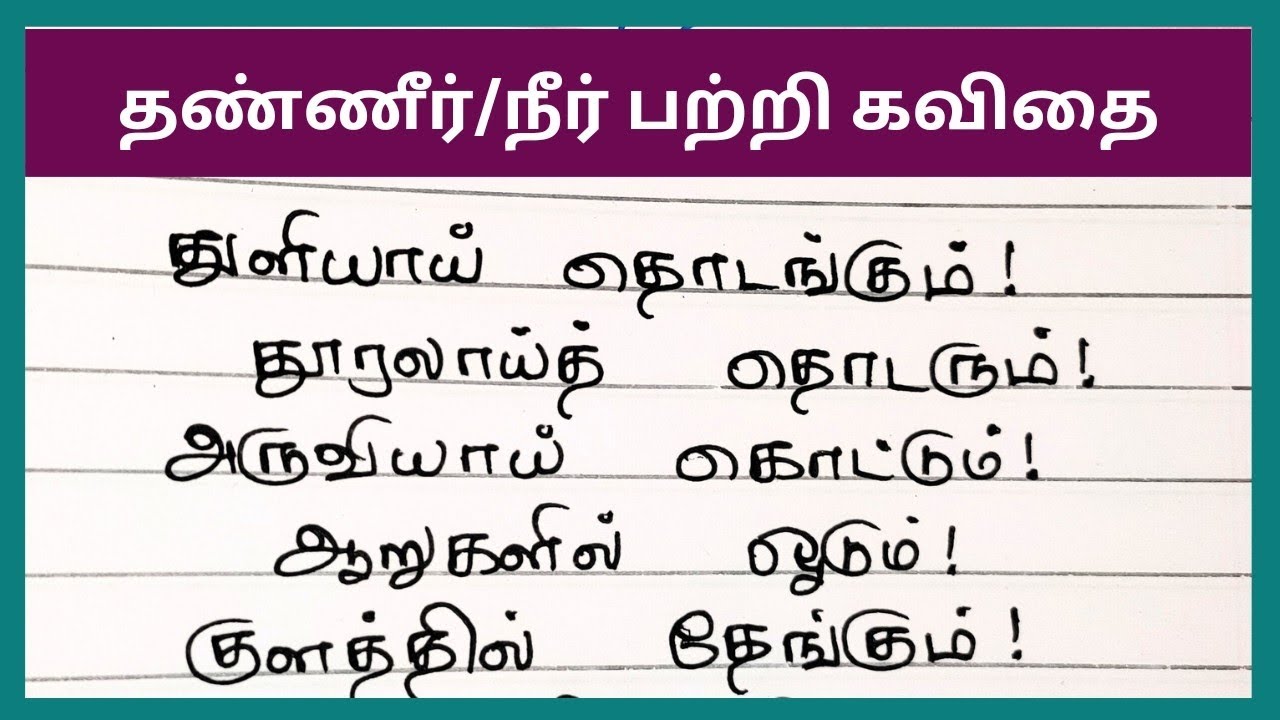 தண்ணீர்/நீர் பற்றி கவிதை
துளியாய் தொடங்கும்!
தூரலாய்த் தொடரும்!
அருவியாய் கொட்டும்!
ஆறுகளில் ஓடும்!
குளத்தில் தேங்கும்!